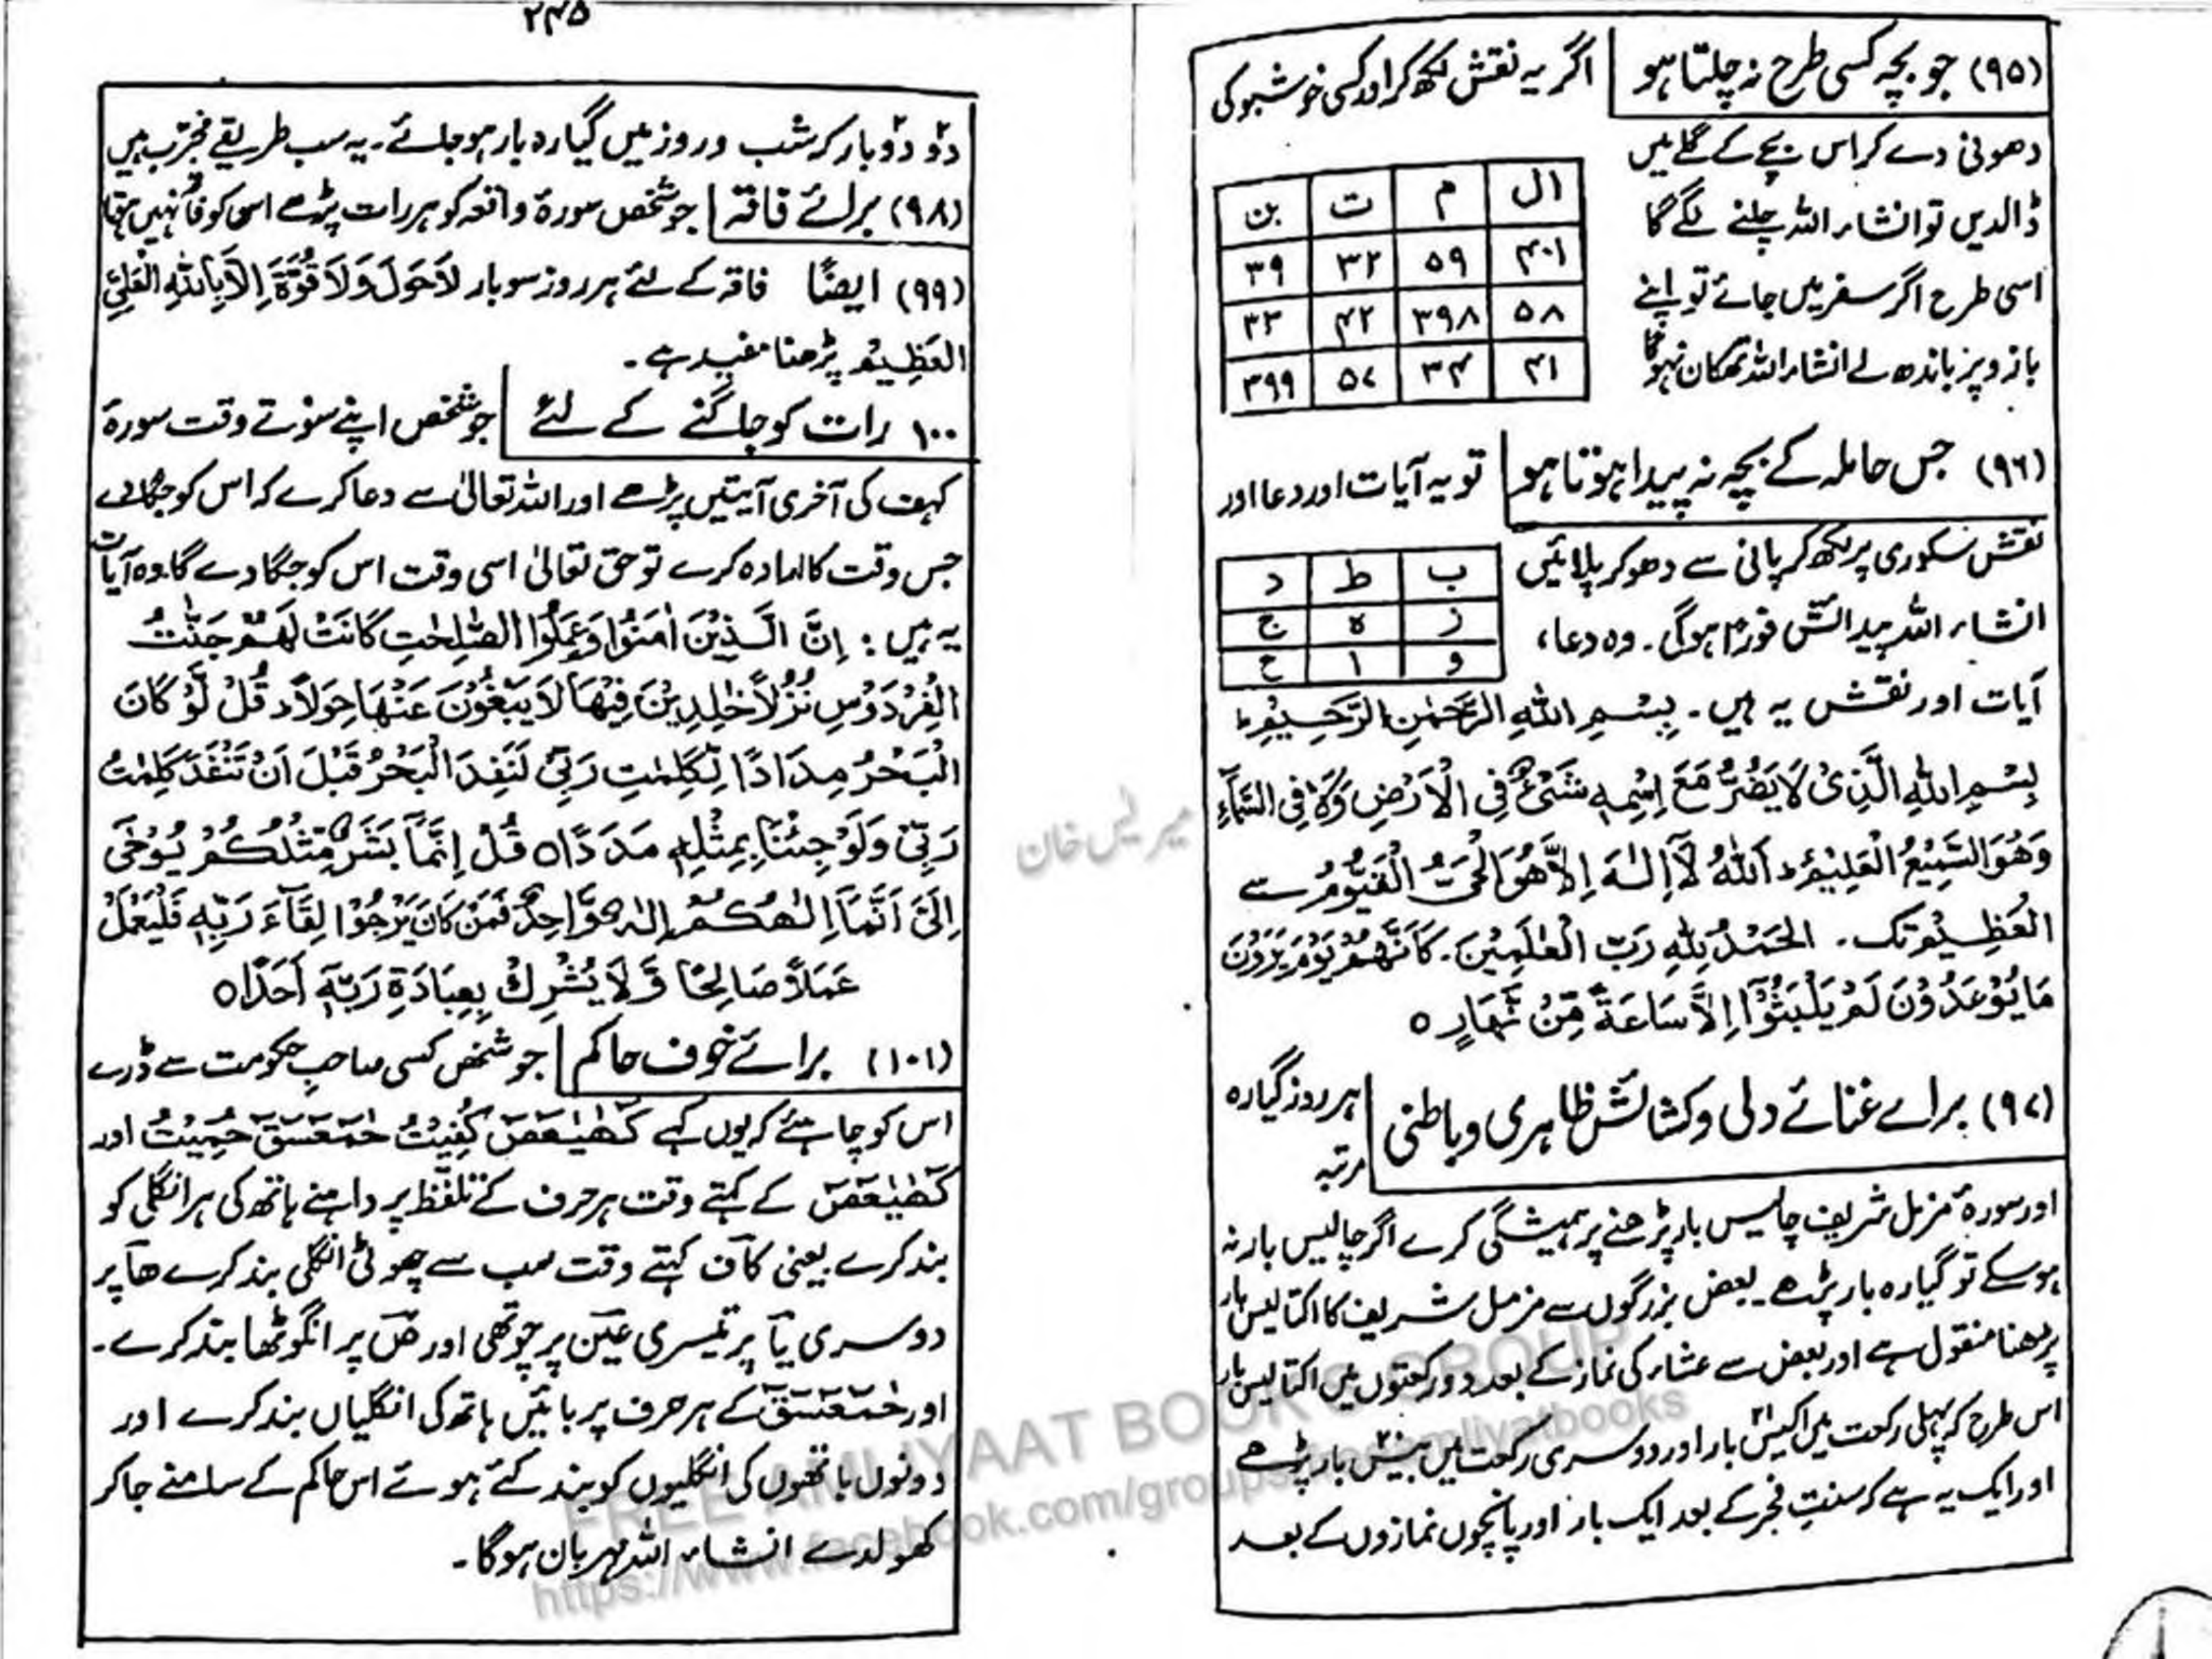 (۹۵) جو بچہ کسی طرح نہ چلتا ہو اگر یہ نقش لکھ کر اور کسی خوشبو کی
دھونی دے کر اس بچے کے گلے میں
ڈالدیں تو انشاء اللہ چلنے لگے گا
اسی طرح اگر سفر میں جائے تو اپنے
بازو پر باندھ لے انشاء اللہ تھکان نہوگا
ال م ت بن
۴۰۱ ۵۹ ۳۲ ۳۹
۵۸ ۳۹۸ ۴۲ ۳۳
۴۱ ۳۴ ۵۷ ۳۹۹
(۹۶) جس حاملہ کے بچہ نہ پیدا ہوتا ہو تو یہ آیات اور دعا اور
نقش سکوری پر لکھ کر پانی سے دھو کر پلائیں
انشاء اللہ پیدائش فوراً ہوگی۔ وہ دعا،
ب ط د
ز ہ ج
و ا ح
آیات اور نقش یہ ہیں۔ بِسْمِ اللهِ الرَّحْمٰنِ الرَّحِیْمِ ط
بِسْمِ اللهِ الَّذِیْ لَا یَضُرُّ مَعَ اِسْمِهٖ شَیْءٌ فِی الْاَرْضِ وَلَا فِی السَّمَآءِ
وَهُوَ السَّمِیْعُ الْعَلِیْمُ ط اَللهُ لَآ اِلٰهَ اِلَّا هُوَ الْحَیُّ الْقَیُّوْمُ سے
الْعَظِیْمُ تک۔ الْحَمْدُ لِلهِ رَبِّ الْعٰلَمِیْنَ۔ کَاَنَّهُمْ یَوْمَ یَرَوْنَ
مَا یُوْعَدُوْنَ لَمْ یَلْبَثُوْٓا اِلَّا سَاعَةً مِّنْ نَّهَارٍ ○
(۹۷) برائے غنائے دلی و کشائش ظاہری و باطنی ہر روز گیارہ
مرتبہ
اور سورۂ مزمل شریف چالیس بار پڑھنے پر ہمیشگی کرے اگر چالیس بار نہ
ہوسکے تو گیارہ بار پڑھے بعض بزرگوں سے مزمل شریف کا اکتالیس بار
پڑھنا منقول ہے اور بعض سے عشاء کی نماز کے بعد دو رکعتوں میں اکتالیس بار
اس طرح کہ پہلی رکعت میں اکیس ۲۱ بار اور دوسری رکعت میں بیس ۲۰ بار پڑھے
اور ایک یہ ہے کہ سنت فجر کے بعد ایک بار اور پانچوں نمازوں کے بعد
۲۴۵
دو دو بار کر شب و روز میں گیارہ بار ہوجائے۔ یہ سب طریقے مجرّب ہیں
(۹۸) برائے فاقہ جو شخص سورۂ واقعہ کو ہر رات پڑھے اسی کو فاقہ نہیں ہوتا
(۹۹) ایضًا فاقہ کے لئے ہر روز سو بار لَا حَوْلَ وَلَا قُوَّةَ اِلَّا بِاللهِ الْعَلِیِّ
الْعَظِیْمِ پڑھنا مفید ہے۔
۱۰۰ رات کو جاگنے کے لئے جو شخص اپنے سوتے وقت سورۃ
کہف کی آخری آیتیں پڑھے اور اللہ تعالیٰ سے دعا کرے کہ اس کو جگائے
جس وقت کا ارادہ کرے تو حق تعالیٰ اسی وقت اس کو جگا دے گا۔ وہ آیات
یہ ہیں : اِنَّ الَّذِیْنَ اٰمَنُوْا وَعَمِلُوا الصّٰلِحٰتِ کَانَتْ لَهُمْ جَنّٰتُ
الْفِرْدَوْسِ نُزُلًا خٰلِدِیْنَ فِیْهَا لَا یَبْغُوْنَ عَنْهَا حِوَلًا ط قُلْ لَّوْ کَانَ
الْبَحْرُ مِدَادًا لِّکَلِمٰتِ رَبِّیْ لَنَفِدَ الْبَحْرُ قَبْلَ اَنْ تَنْفَدَ کَلِمٰتُ
رَبِّیْ وَلَوْ جِئْنَا بِمِثْلِهٖ مَدَدًا○ قُلْ اِنَّمَآ بَشَرٌ مِّثْلُکُمْ یُوْحٰی
اِلَیَّ اَنَّمَآ اِلٰهُکُمْ اِلٰهٌ وَّاحِدٌ فَمَنْ کَانَ یَرْجُوْا لِقَآءَ رَبِّهٖ فَلْیَعْمَلْ
عَمَلًا صَالِحًا وَّلَا یُشْرِكْ بِعِبَادَةِ رَبِّهٖٓ اَحَدًا○
(۱۰۱) برائے خوف حاکم جو شخص کسی صاحبِ حکومت سے ڈرے
اس کو چاہئے کہ یوں کہے کٓهٰیٰعٓصٓ کُفِیْتُ حٰمٓعٓسٓقٓ حُمِیْتُ اور
کٓهٰیٰعٓصٓ کے کہتے وقت ہر حرف کے تلفّظ پر داہنے ہاتھ کی ہر انگلی کو
بند کرے یعنی کآف کہتے وقت سب سے چھوٹی انگلی بند کرے ھآ پر
دوسری یآ پر تیسری عین پر چوتھی اور صٓ پر انگوٹھا بند کرے۔
اور حٰمٓعٓسٓقٓ کے ہر حرف پر بائیں ہاتھ کی انگلیاں بند کرے اور
دونوں ہاتھوں کی انگلیوں کو بند کئے ہوئے اس حاکم کے سامنے جاکر
کھولدے انشاء اللہ مہربان ہوگا۔
FREE AMLIYAAT BOOKS GROUP
https://www.facebook.com/groups/freeamliyatbooks